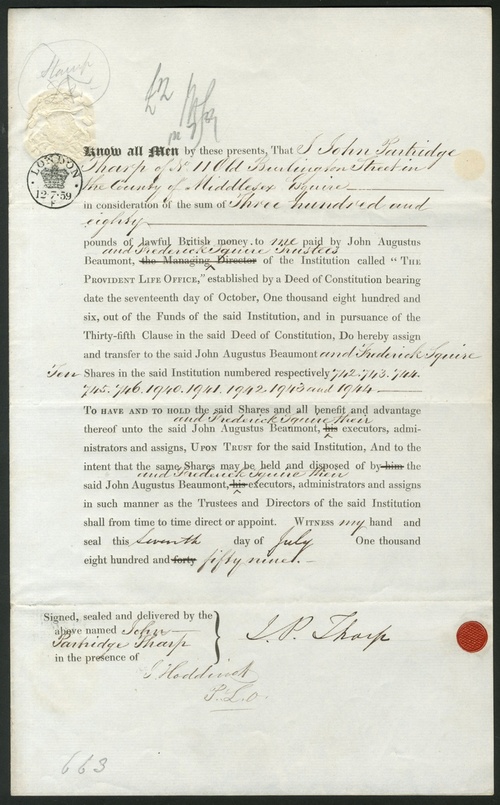 Stamp
£2
LONDON
12·7·59
F
Know all Men by these presents, That I John Partridge
Tharp of No 11 Old Burlington Street in
the County of Middlesex Esquire
in consideration of the sum of Three hundred and
eighty
pounds of lawful British money to me paid by John Augustus
and Frederick Squire Trustees
Beaumont, the Managing Director of the Institution called "THE
PROVIDENT LIFE OFFICE," established by a Deed of Constitution bearing
date the seventeenth day of October, One thousand eight hundred and
six, out of the Funds of the said Institution, and in pursuance of the
Thirty-fifth Clause in the said Deed of Constitution, Do hereby assign
and transfer to the said John Augustus Beaumont and Frederick Squire
Ten Shares in the said Institution numbered respectively 742. 743. 744.
745. 746. 1940. 1941. 1942 1943 and 1944
TO HAVE AND TO HOLD the said Shares and all benefit and advantage
and Frederick Squire their
thereof unto the said John Augustus Beaumont, his executors, admi-
nistrators and assigns, UPON TRUST for the said Institution, And to the
intent that the same Shares may be held and disposed of by him the
and Frederick Squire their
said John Augustus Beaumont, his executors, administrators and assigns
in such manner as the Trustees and Directors of the said Institution
shall from time to time direct or appoint. WITNESS my hand and
seal this seventh day of July One thousand
eight hundred and forty fifty nine.
Signed, sealed and delivered by the
above named John
Partridge Tharp
in the presence of
J. P. Tharp
P.L.O.
663